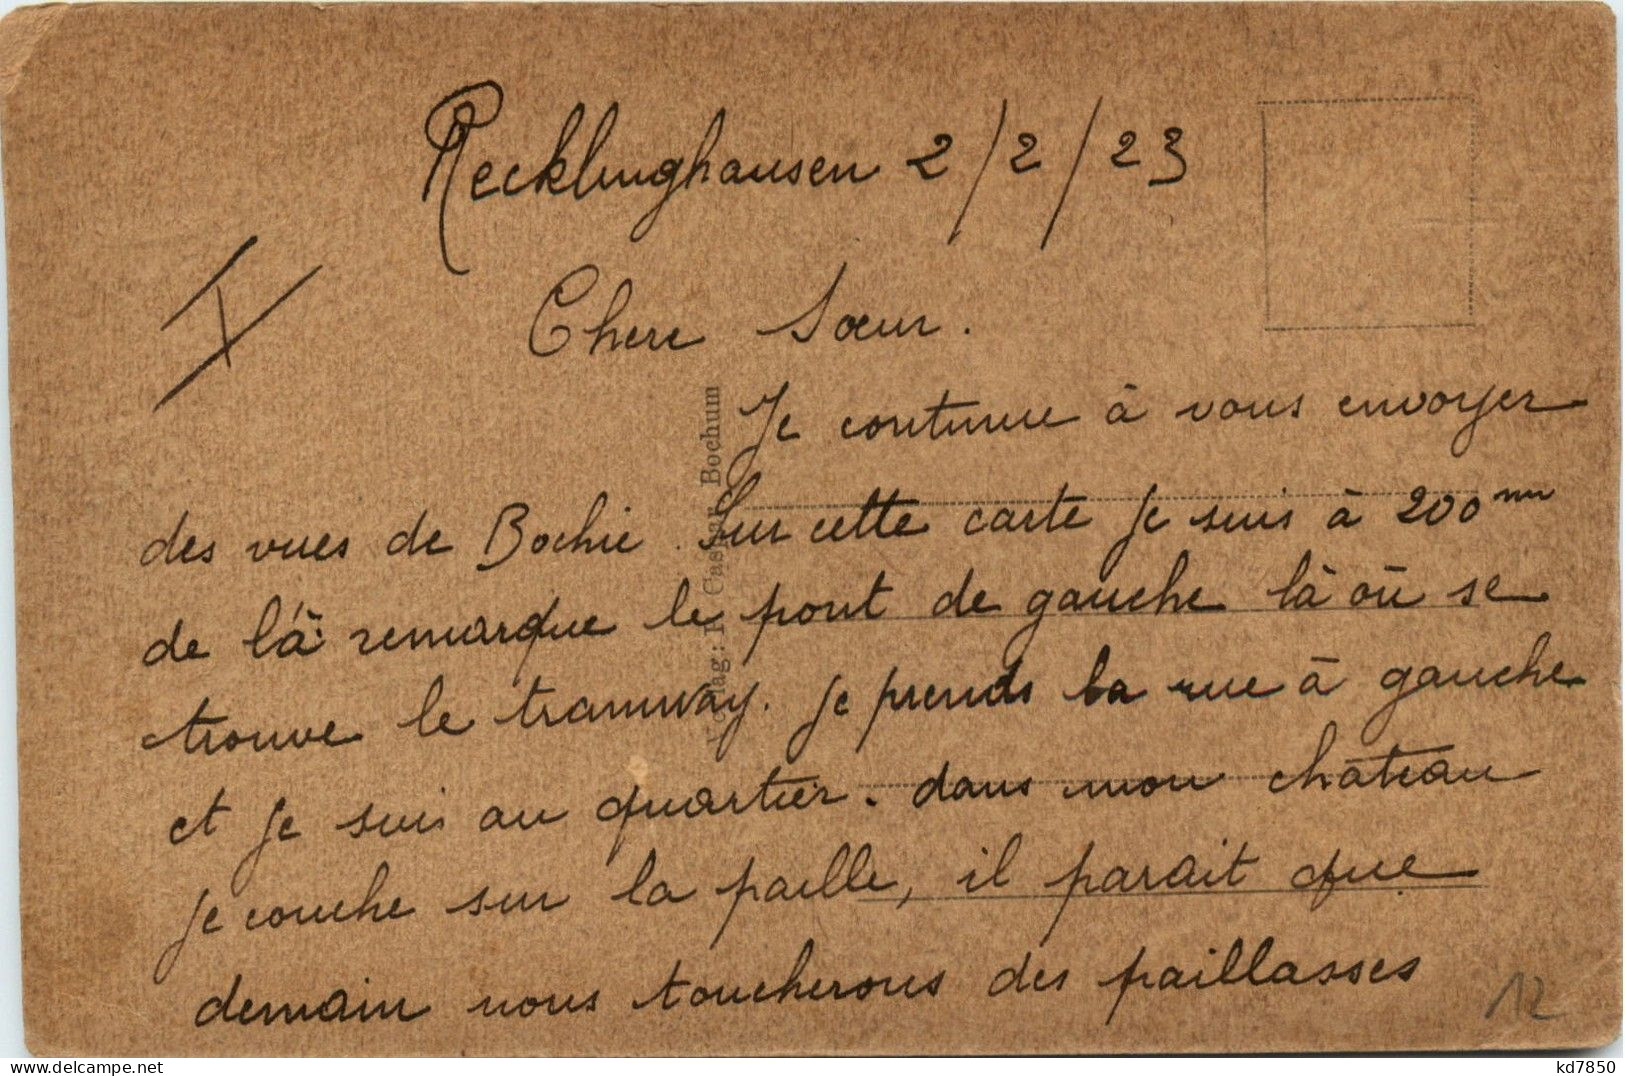 Recklinghausen 2/2/23
I
Chere Sœur.
Je continue à vous envoyer
des vues de Bochie. Sur cette carte je suis à 200 m
de là remarque le pont de gauche là où se
trouve le tramway. je prends la rue à gauche
et je suis au quartier. dans mon château
je couche sur la paille, il parait que
demain nous toucherons des paillasses
12
Verlag: F. Caspar, Bochum
delcampe.net
kd7850